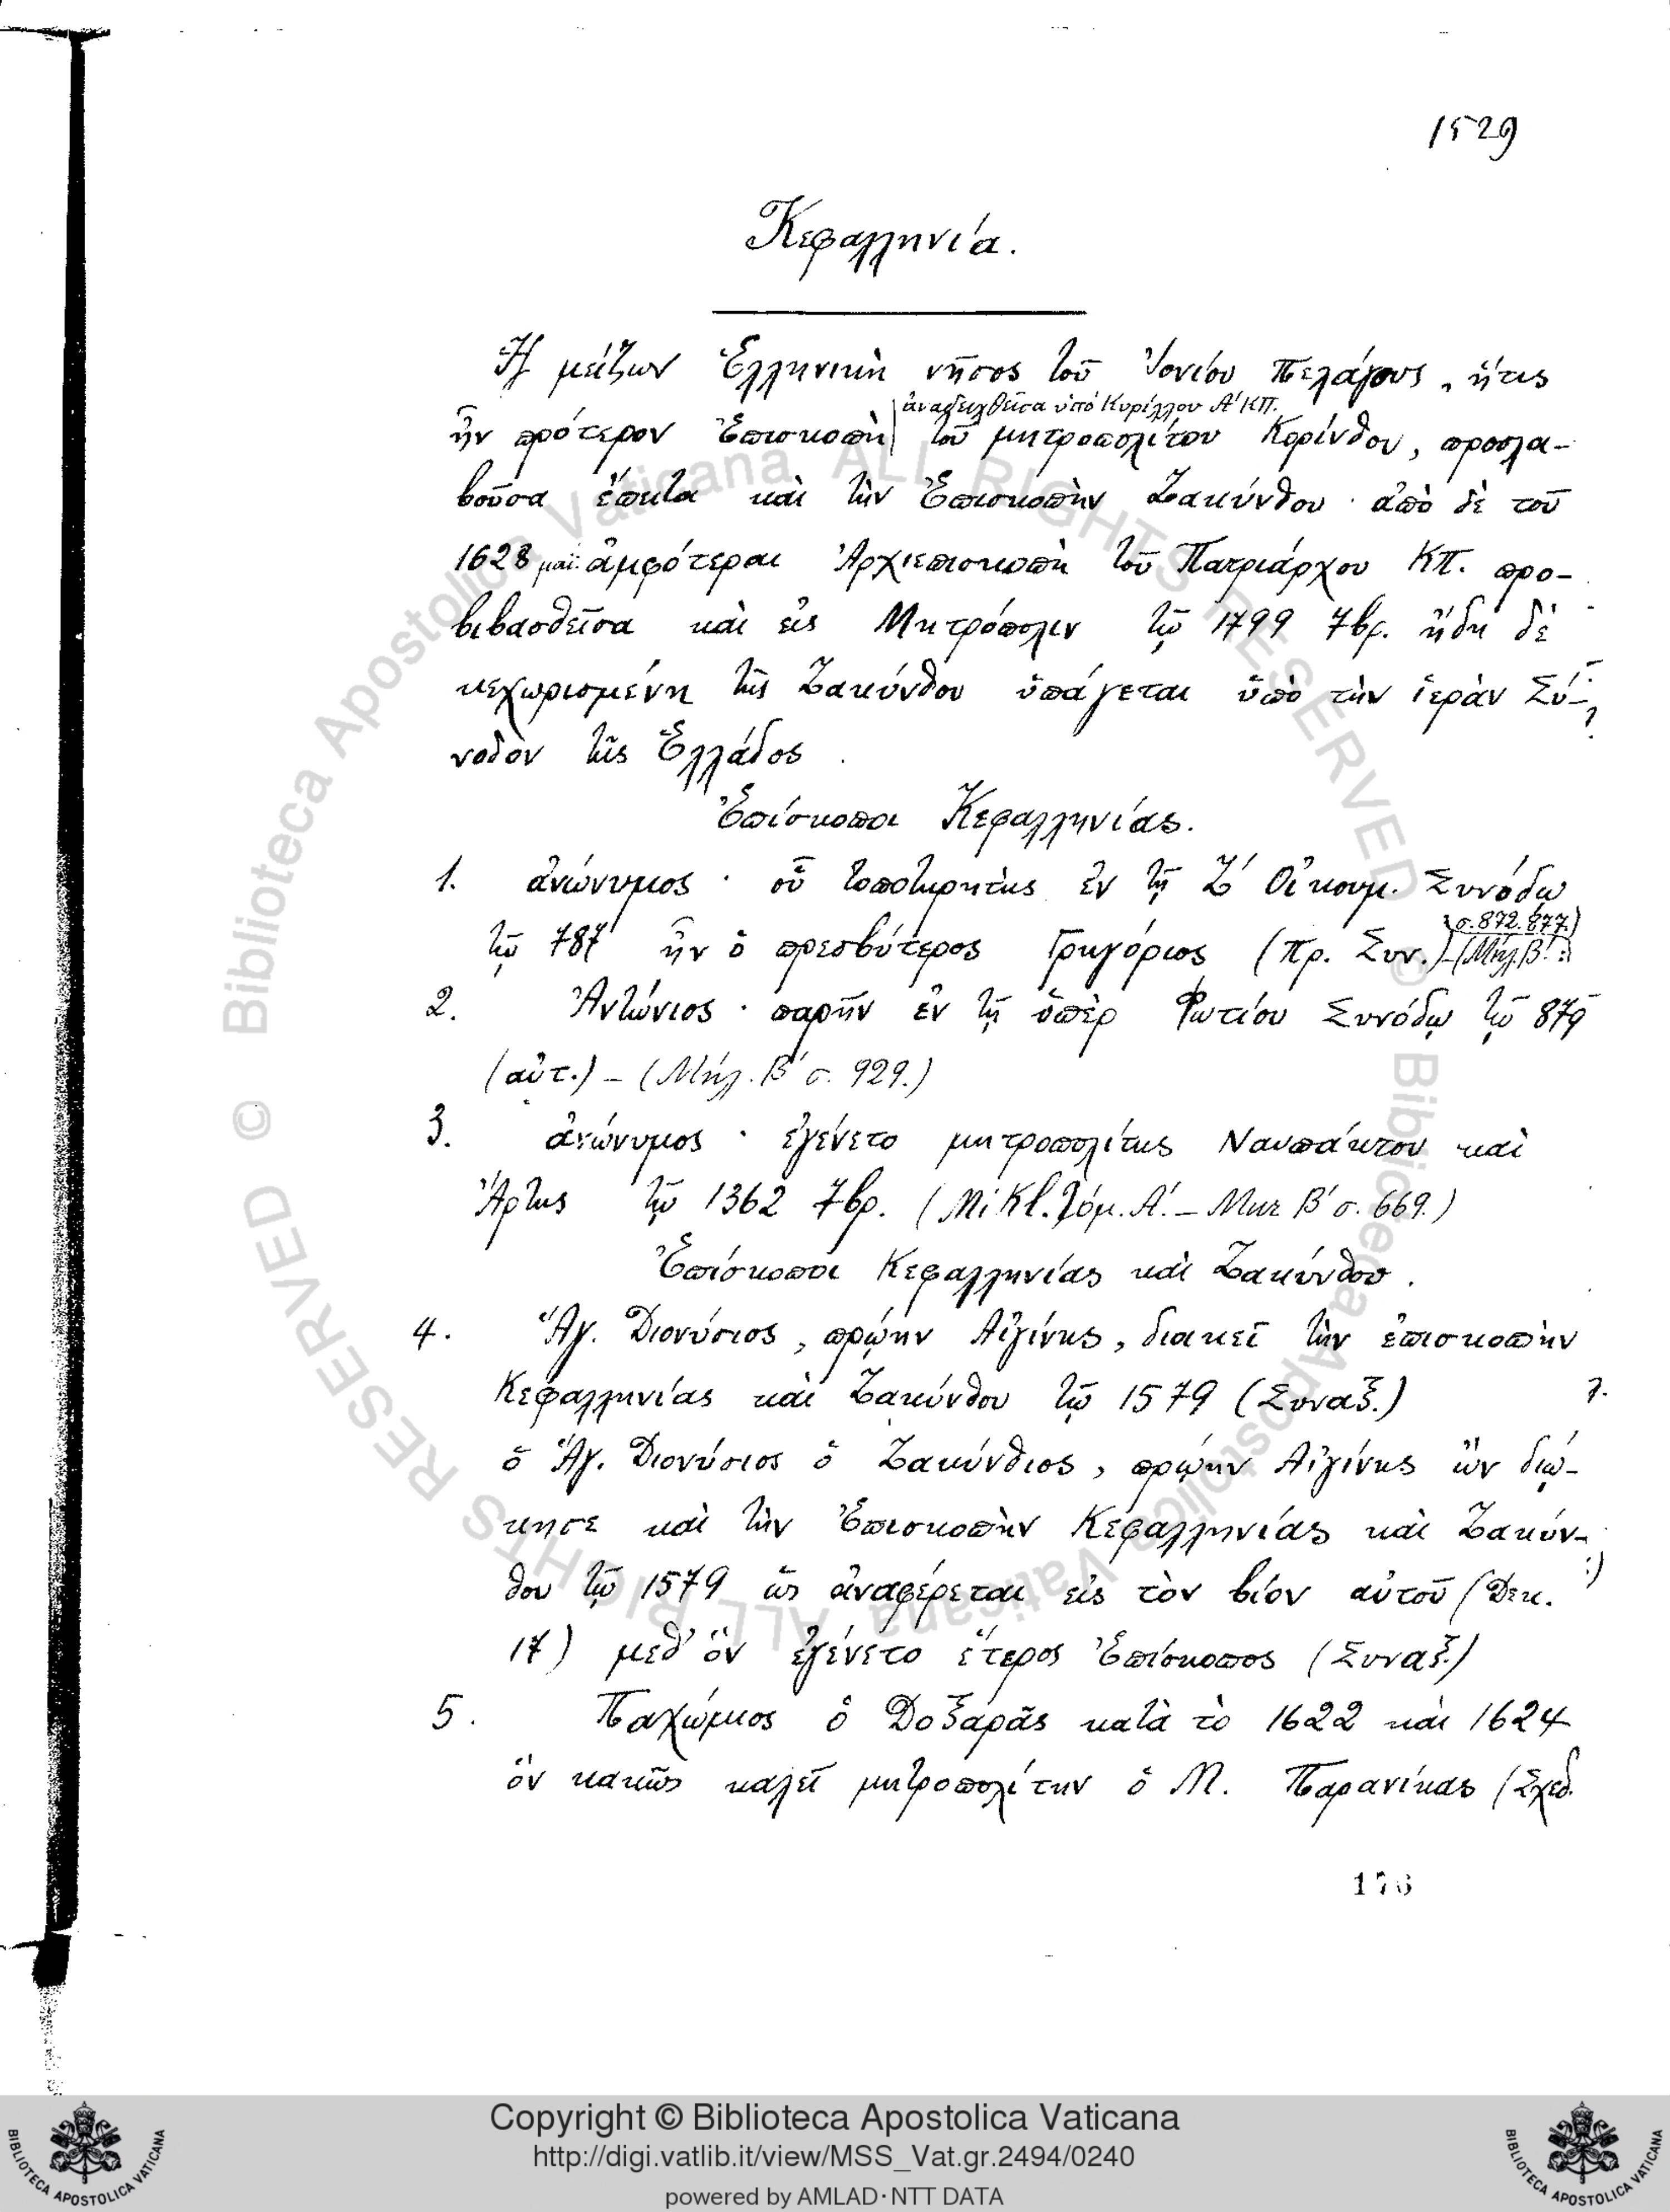 1529
Κεφαλληνία.
Ἡ μείζων Ἑλληνικὴ νῆσος τοῦ Ἰονίου Πελάγους, ἥτις
ἀναδειχθεῖσα ὑπό Κυρίλλου Α΄ ΚΠ.
ἦν πρότερον Ἐπισκοπὴ τοῦ μητροπολίτου Κορίνθου, προσλα-
βοῦσα ἔπειτα καὶ τὴν Ἐπισκοπὴν Ζακύνθου· ἀπὸ δὲ τοῦ
1628 μαΐ: ἀμφότεραι Ἀρχιεπισκοπὴ τοῦ Πατριάρχου ΚΠ. προ-
βιβασθεῖσα καὶ εἰς Μητρόπολιν τῷ 1799 7βρ. ἤδη δὲ
κεχωρισμένη τῆς Ζακύνθου ὑπάγεται ὑπὸ τὴν ἱερὰν Σύ-
νοδον τῆς Ἑλλάδος.
Ἐπίσκοποι Κεφαλληνίας.
1. ἀνώνυμος· οὗ τοποτηρητὴς ἐν τῇ Ζ΄ Οἰκουμ. Συνόδῳ
σ. 872. 877.)
τῷ 787 ἦν ὁ πρεσβύτερος Γρηγόριος (Πρ. Συν.)-(Μηλ. Β΄:
2. Ἀντώνιος· παρῆν ἐν τῇ ὑπὲρ Φωτίου Συνόδῳ τῷ 879
(αὐτ.) - (Μηλ. Β΄ σ. 929.)
3. ἀνώνυμος· ἐγένετο μητροπολίτης Ναυπάκτου καὶ
Ἄρτης τῷ 1362 7βρ. (Mikl. Τόμ. Α΄. - Μηλ Β΄ σ. 669.)
Ἐπίσκοποι Κεφαλληνίας καὶ Ζακύνθου.
4. Ἅγ. Διονύσιος, πρῴην Αἰγίνης, διοικεῖ τὴν ἐπισκοπὴν
Κεφαλληνίας καὶ Ζακύνθου τῷ 1579 (Συναξ.)
ὁ Ἅγ. Διονύσιος ὁ Ζακύνθιος, πρῴην Αἰγίνης ὢν διῴ-
κησε καὶ τὴν Ἐπισκοπὴν Κεφαλληνίας καὶ Ζακύν-
θου τῷ 1579 ὡς ἀναφέρεται εἰς τὸν βίον αὐτοῦ (Δεκ.
17) μεθ' ὃν ἐγένετο ἕτερος Ἐπίσκοπος (Συναξ.)
5. Παχώμιος ὁ Δοξαρᾶς κατὰ τὸ 1622 καὶ 1624
ὃν κακῶς καλεῖ μητροπολίτην ὁ Μ. Παρανίκας (Σχεδ.
176
© Biblioteca Apostolica Vaticana ALL RIGHTS RESERVED © Biblioteca Apostolica Vaticana ALL RIGHTS RESERVED
Copyright © Biblioteca Apostolica Vaticana
http://digi.vatlib.it/view/MSS_Vat.gr.2494/0240
powered by AMLAD·NTT DATA
BIBLIOTECA APOSTOLICA VATICANA
BIBLIOTECA APOSTOLICA VATICANA